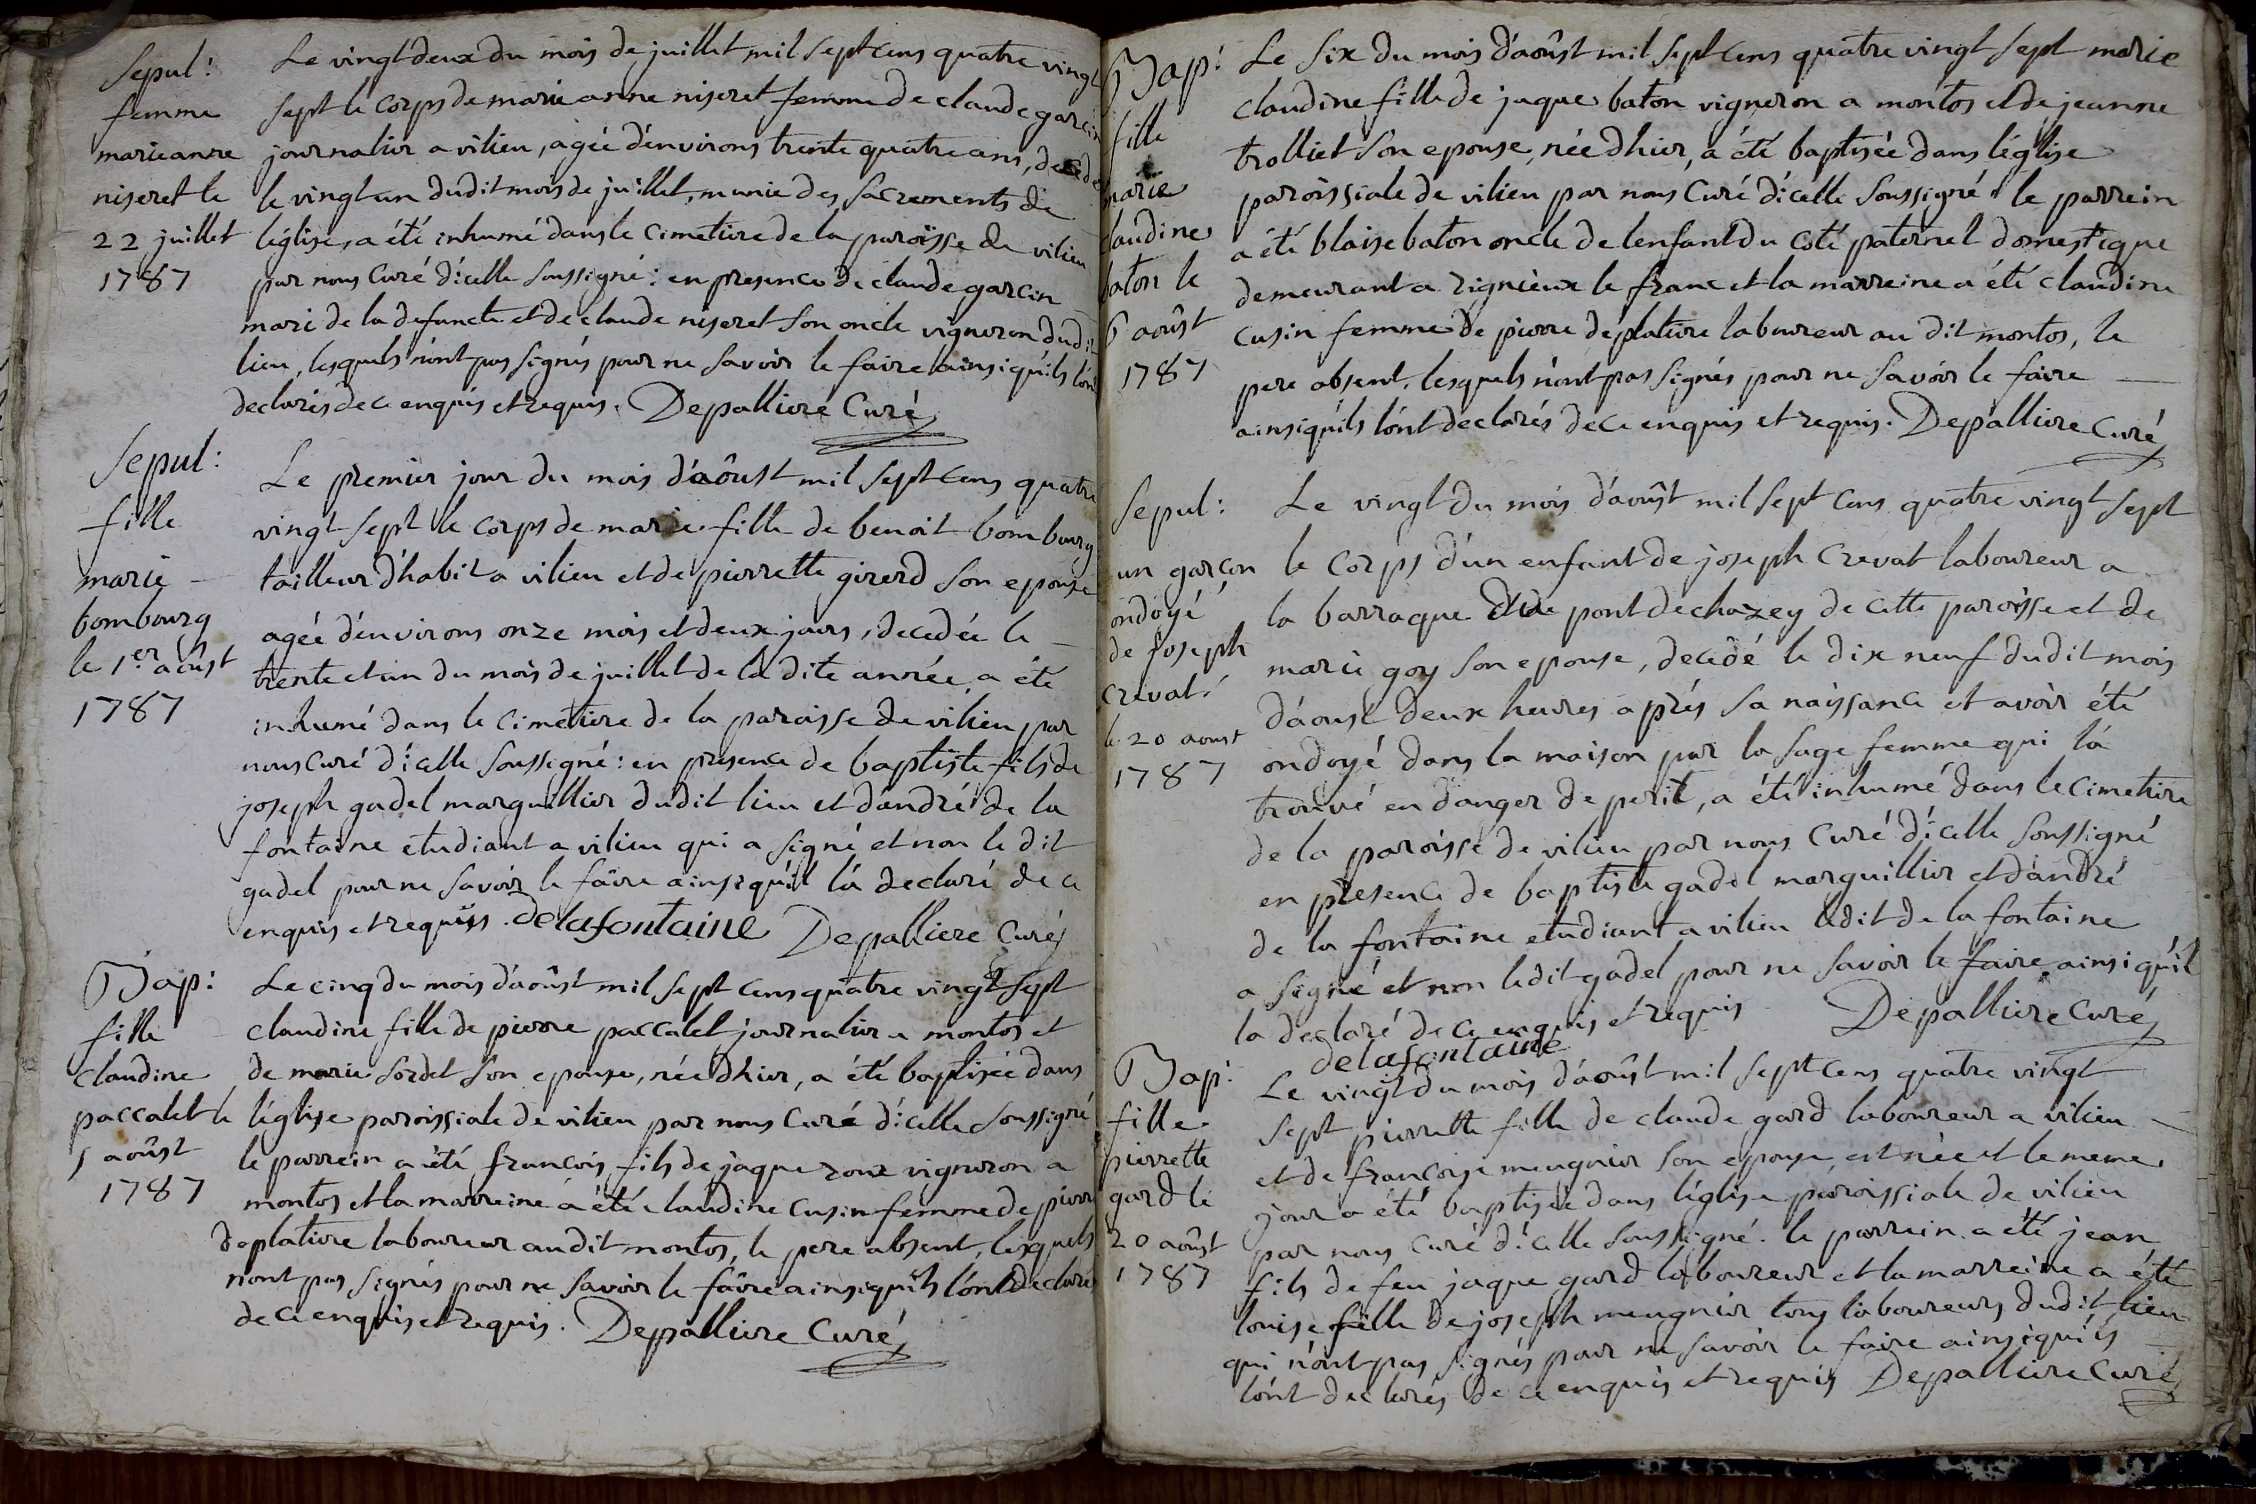 Sepul:
femme
marieanne
niseret le
22 juillet
1787
Le vingt deux du mois de juillet mil sept cens quatre vingt
sept le corps de marie anne niseret femme de claude garcin
journalier a vilieu, agée d'environs trente quatre ans, decedée
le vingt un dudit mois de juillet, munie des sacrements de
léglise, a été inhumé dans le cimetiere de la paroisse de vilieu
par nous Curé d'icelle soussigné: en presence de claude garcin
mari de la defuncte et de claude niseret son oncle vigneron dudit
lieu, lesquels n'ont pas signés pour ne savoir le faire ainsi qu'ils l'ont
declarés de ce enquis et requis. Depalliere Curé
Sepul:
fille
marie
bombourg
le 1er aoûst
1787
Le premier jour du mois d'aoûst mil sept cens quatre
vingt sept le corps de marie fille de benoit bombourg
tailleur d'habit a vilieu et de pierrette girerd son epouse
agée d'environs onze mois et deux jours, decedée le
trente et un du mois de juillet de la dite année, a été
inhumé dans le cimetiere de la paroisse de vilieu par
nous Curé d'icelle soussigné: en presence de baptiste fils de
joseph gadel marguillier dudit lieu et d'andré de la
fontaine etudiant a vilieu qui a signé et non le dit
gadel pour ne savoir le faire ainsi qu'il l'a declaré de ce
enquis et requis. delafontaine Depalliere Curé
Bap:
fille
Claudine
paccalet le
5 aoûst
1787
Le cinq du mois d'aoûst mil sept cens quatre vingt sept
claudine fille de pierre paccalet journalier a montos et
de marie sordet son epouse, née dhier, a été baptisée dans
léglise paroissiale de vilieu par nous Curé d'icelle soussigné
le parrein a été francois fils de jaque roux vigneron a
montos et la marreine a été claudine cusin femme de pierre
deplatiere laboureur audit montos, le pere absent, lesquels
n'ont pas signés pour ne savoir le faire ainsi quils l'ont declaré
de ce enquis et requis. Depalliere Curé
Bap:
fille
marie
claudine
baton le
6 aoûst
1787
Le six du mois d'aoûst mil sept cens quatre vingt sept marie
claudine fille de jaque baton vigneron a montos et de jeanne
trolliet son epouse, née dhier, a été baptisée dans léglise
paroissiale de vilieu par nous Curé d'icelle soussigné le parrein
a été blaise baton oncle de lenfant du coté paternel domestique
demeurant a rignieux le franc et la marreine a été claudine
cusin femme de pierre deplatiere laboureur au dit montos, le
pere absent. lesquels n'ont pas signés pour ne savoir le faire
ainsi qu'ils l'ont declarés de ce enquis et requis. Depalliere Curé
Sepul:
un garçon
ondoyé
de joseph
crevat
le 20 aoust
1787
Le vingt du mois d'aoûst mil sept cens quatre vingt sept
le corps d'un enfant de joseph Crevat laboureur a
la barraque du pont de chazey de cette paroisse et de
marie goy son epouse, decedé le dix neuf dudit mois
d'aoust deux heures aprés sa naissance et avoir été
ondoyé dans la maison par la sage femme qui l'a
trouvé en danger de perit, a été inhumé dans le cimetiere
de la paroisse de vilieu par nous Curé d'icelle soussigné
en presence de baptiste gadel marguillier et d'andré
de la fontaine etudiant a vilieu ledit de la fontaine
a signé et non ledit gadel pour ne savoir le faire ainsi qu'il
la declaré de ce enquis et requis Depalliere Curé
delafontaine
Bap:
fille
pierrette
gard le
20 aoûst
1787
Le vingt du mois d'aoûst mil sept cens quatre vingt
sept pierrette fille de claude gard laboureur a vilieu
et de françoise meugnier son epouse, est née et le meme
jour a été baptisée dans léglise paroissiale de vilieu
par nous Curé d'icelle soussigné. le parrein a été jean
fils de feu jaque gard laboureur et la marreine a été
louise fille de joseph meugnier tous laboureurs dudit lieu
qui n'ont pas signés pour ne savoir le faire ainsi qu'ils
l'ont declarés de ce enquis et requis Depalliere Curé